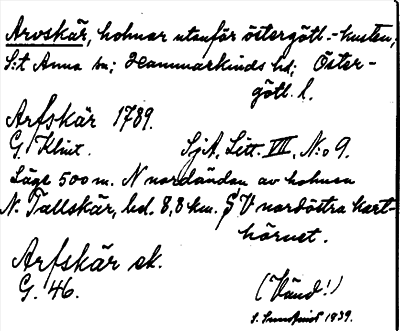 Arvskär, holmar utanför östergötl.-kusten,
S:t Anna sn; Hammarkinds hd; Öster-
götl. l.
Arfskär 1789.
G. Klint. SjA, Litt. VII, N:o 9.
Läge 500 m. N nordändan av holmen
N. Tallskär, bel. 8,8 km. SV nordöstra kart-
hörnet.
Arfskär ek.
G. 46. (Vänd!)
S. Sundqvist 1939.